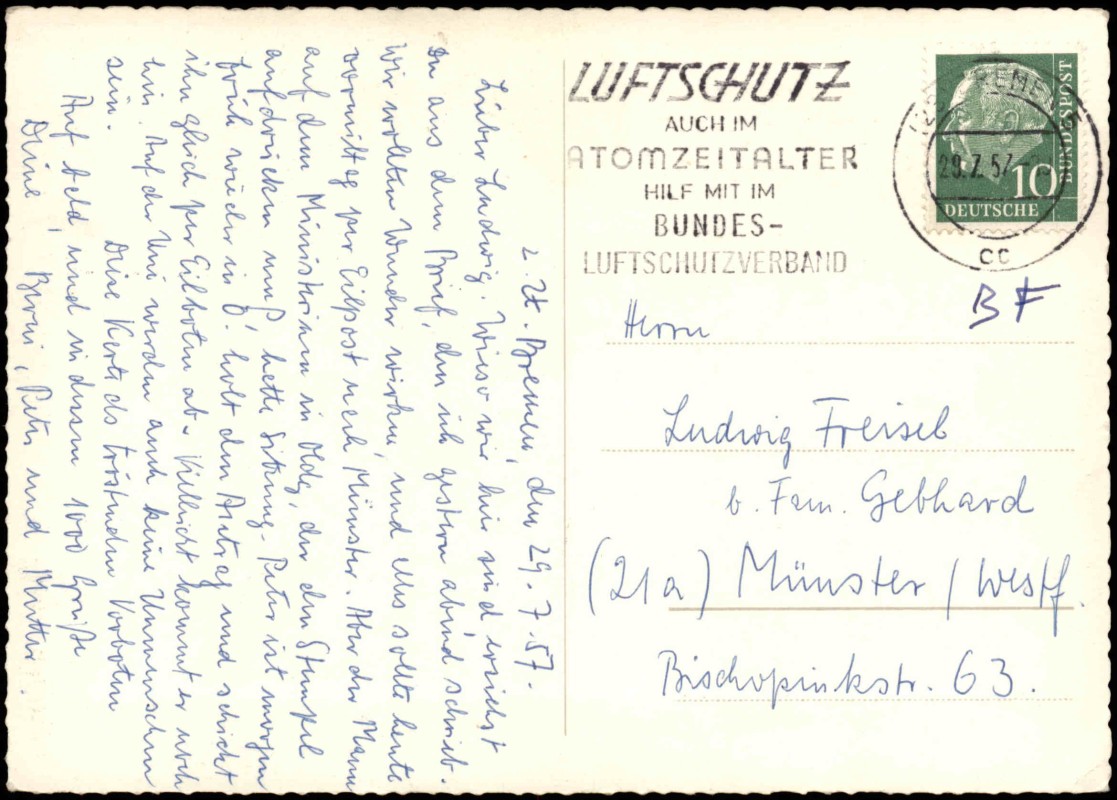 z. Zt. Bremen, den 29.7.57.
Lieber Ludwig. Wieso wir hier sind ersiehst
Du aus dem Brief, den ich gestern abend schrieb.
Wir wollten Wunder wirken, und alles sollte heute
vormittag per Eilpost nach Münster. Aber der Mann
auf dem Ministerium in Oldg, der den Stempel
aufdrücken muß, hatte Sitzung. Peter ist morgen
früh wieder in O. holt den Antrag und schickt
ihn gleich per Eilboten ab. Vielleicht kommt er noch
hin. Auf der Uni werden auch keine Unmenschen
sein. Diese Karte als tröstenden Vorboten
Auf bald, und indessen 1000 Grüße
Deine Broni, Peter und Mutter.
LUFTSCHUTZ
AUCH IM
ATOMZEITALTER
HILF MIT IM
BUNDES-
LUFTSCHUTZVERBAND
BREMEN
29.7.57
cc
10
DEUTSCHE
BUNDESPOST
BF
Herrn
Ludwig Freiseb
b. Fam. Gebhard
(21a) Münster / Westf.
Bischopinkstr. 63.